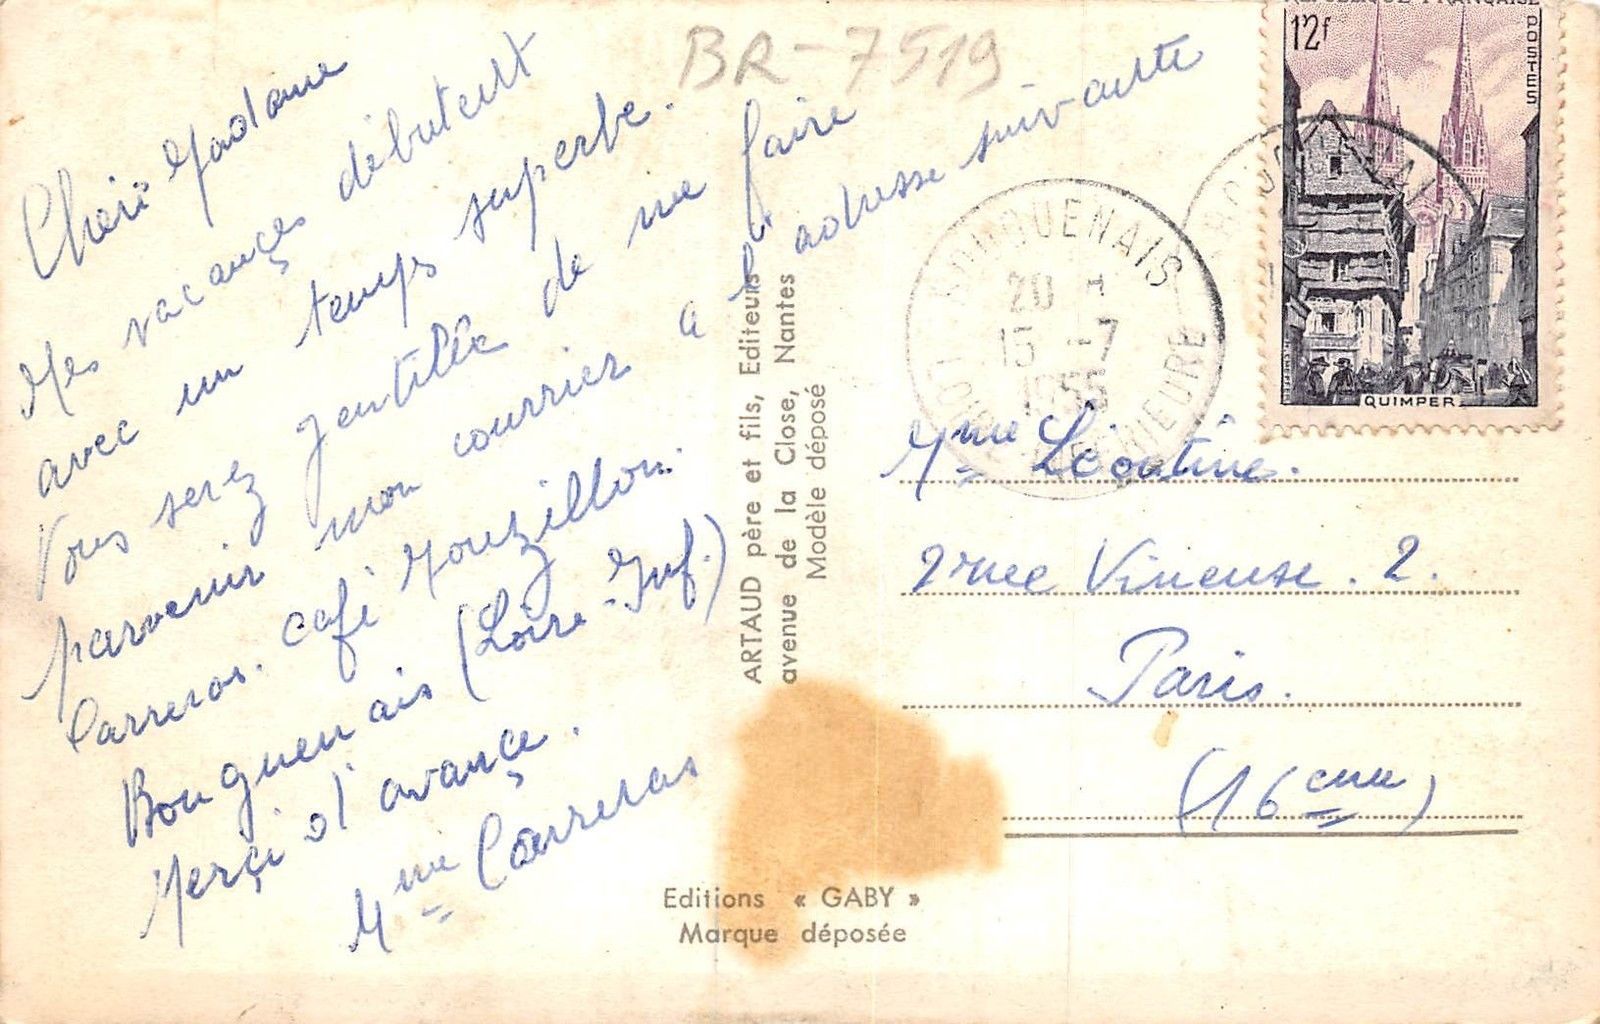 BR-7519
Chère Madame
Mes vacançes débutent
avec un temps superbe.
Vous serez gentille de me faire
parvenir mon courrier a l'adresse suivante
Carreras. café Mouzillon.
Bouguenais (Loire-Inf.)
Merçi d'avançe.
Mme Carreras
ARTAUD père et fils, Editeurs
avenue de la Close, Nantes
Modèle déposé
Editions « GABY »
Marque déposée
BOUGUENAIS
20 H
15 -7
1955
LOIRE INFERIEURE
REPUBLIQUE FRANÇAISE
12f
POSTES
QUIMPER
Mme Léontine.
2 rue Vineuse. 2.
Paris.
(16eme)